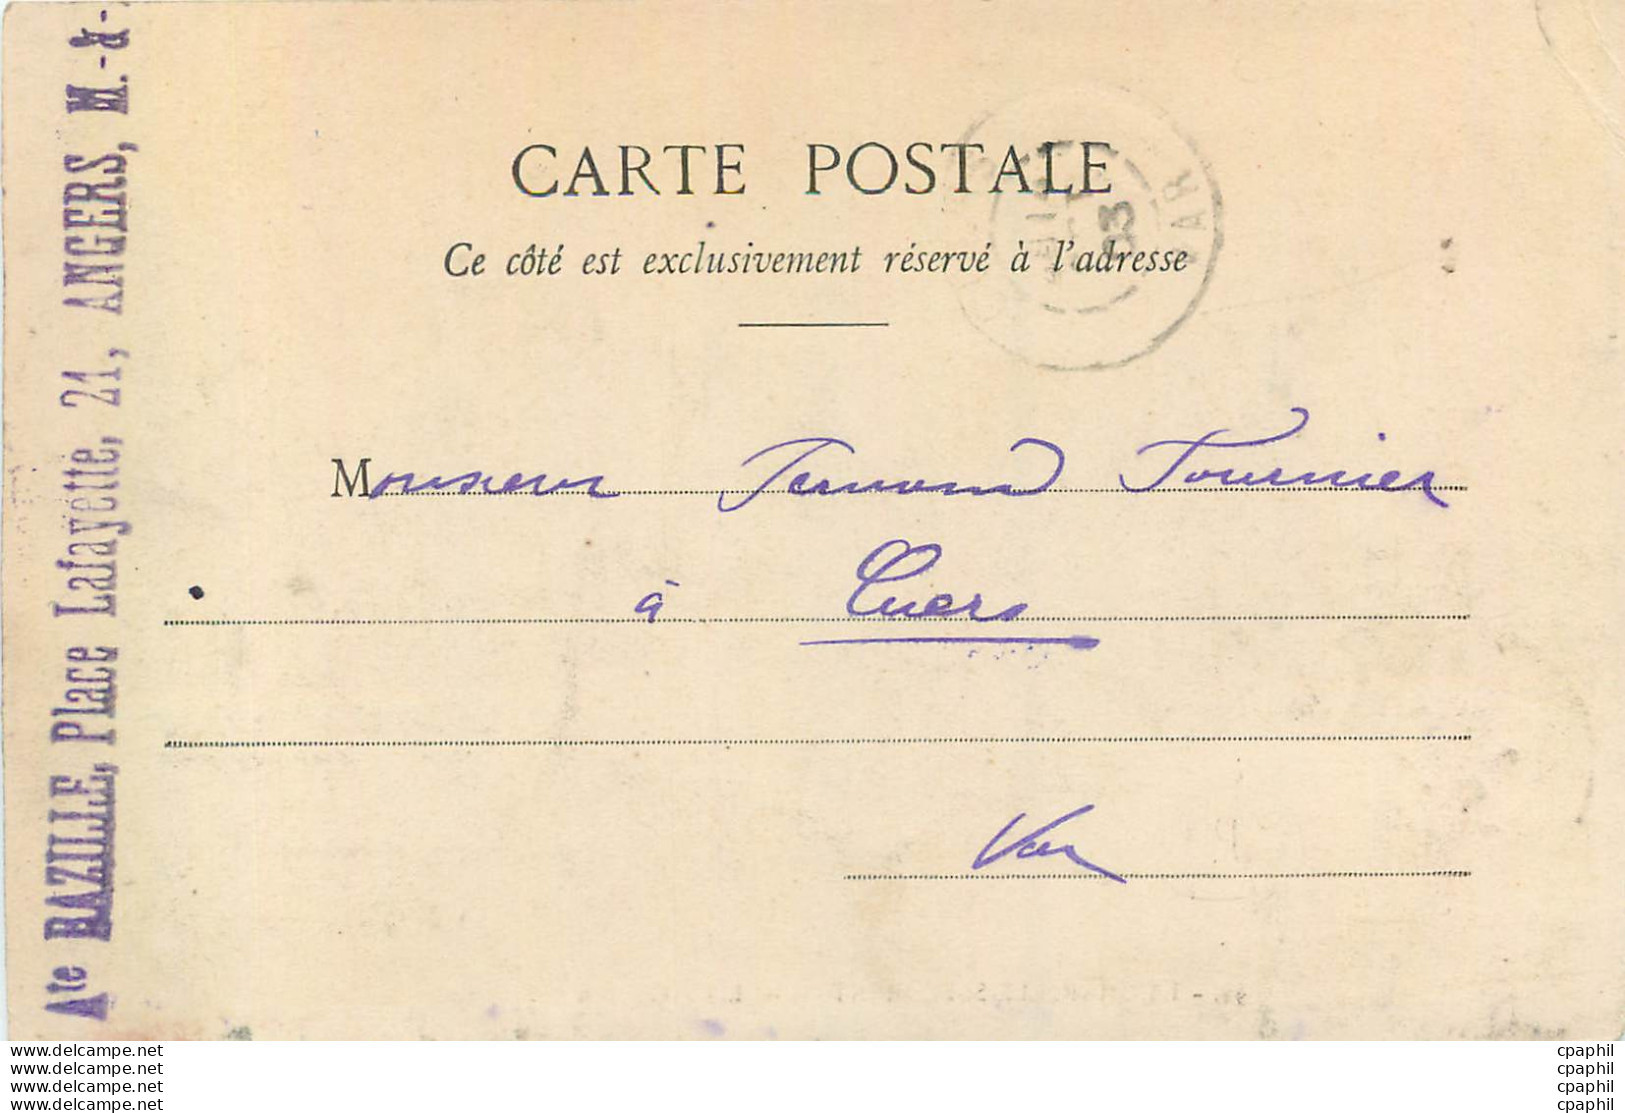 CARTE POSTALE
Ce côté est exclusivement réservé à l'adresse
Monsieur Fernand Fournier
à Cuers
Var
Ate BAZILLE, Place Lafayette, 21, ANGERS, M.-&-
VAR
03
www.delcampe.net
www.delcampe.net
www.delcampe.net
www.delcampe.net
cpaphil
cpaphil
cpaphil
cpaphil